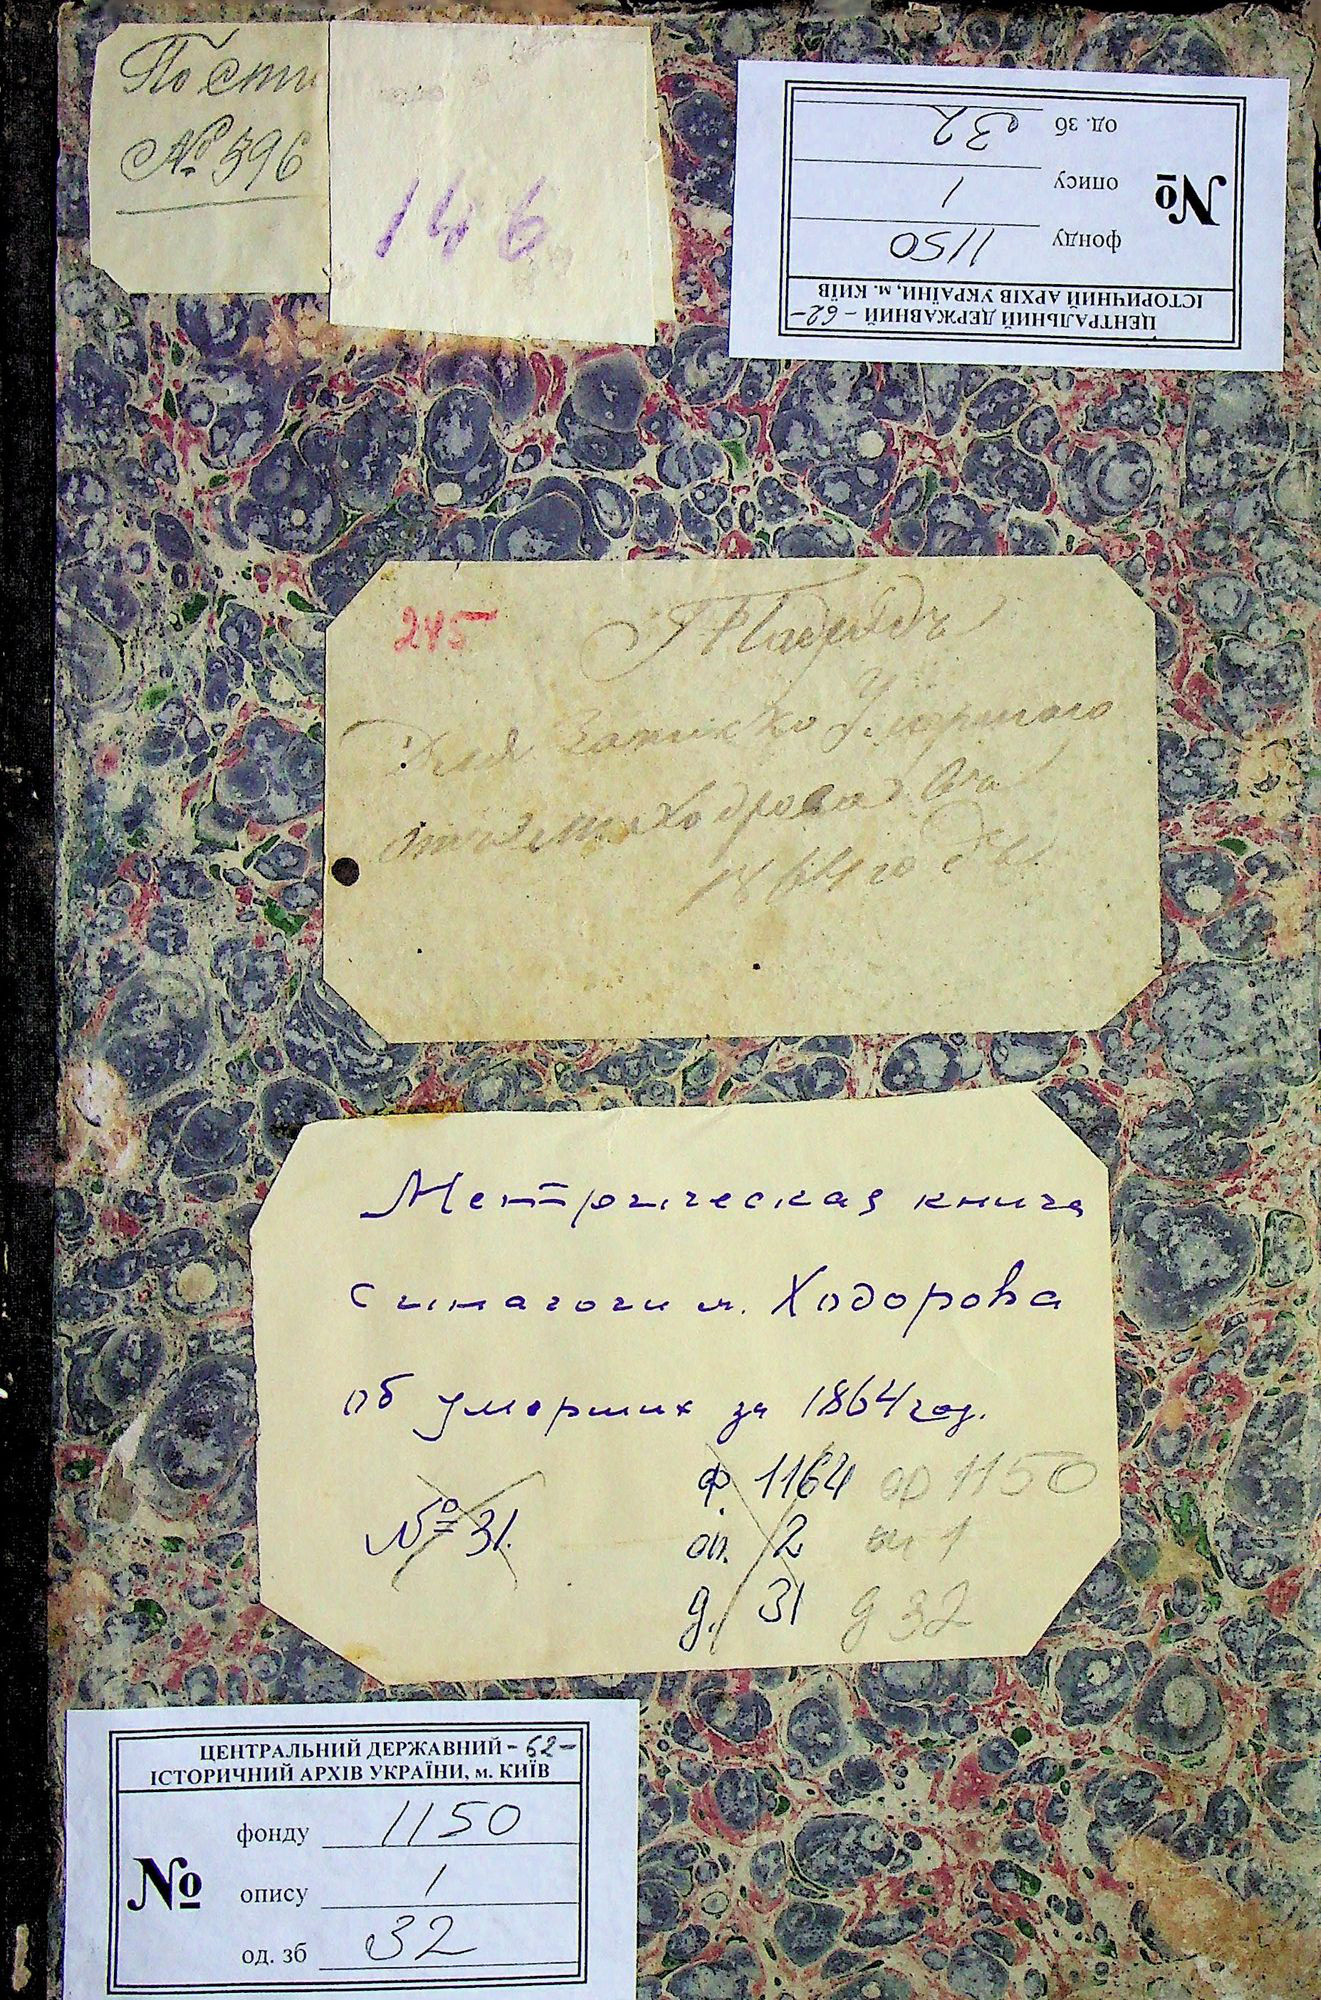 По опи
№ 396
146
ЦЕНТРАЛЬНИЙ ДЕРЖАВНИЙ -62-
ІСТОРИЧНИЙ АРХІВ УКРАЇНИ, м. КИЇВ
фонду 1150
№
опису 1
од. зб 32
245
Для записко
1864го
Метрическая книга
синагоги м. Ходорова
об умерших за 1864 год.
ф. 1164 ф 1150
№ 31.
оп. 2 оп 1
д. 31 д 32
ЦЕНТРАЛЬНИЙ ДЕРЖАВНИЙ -62-
ІСТОРИЧНИЙ АРХІВ УКРАЇНИ, м. КИЇВ
фонду 1150
№
опису 1
од. зб 32